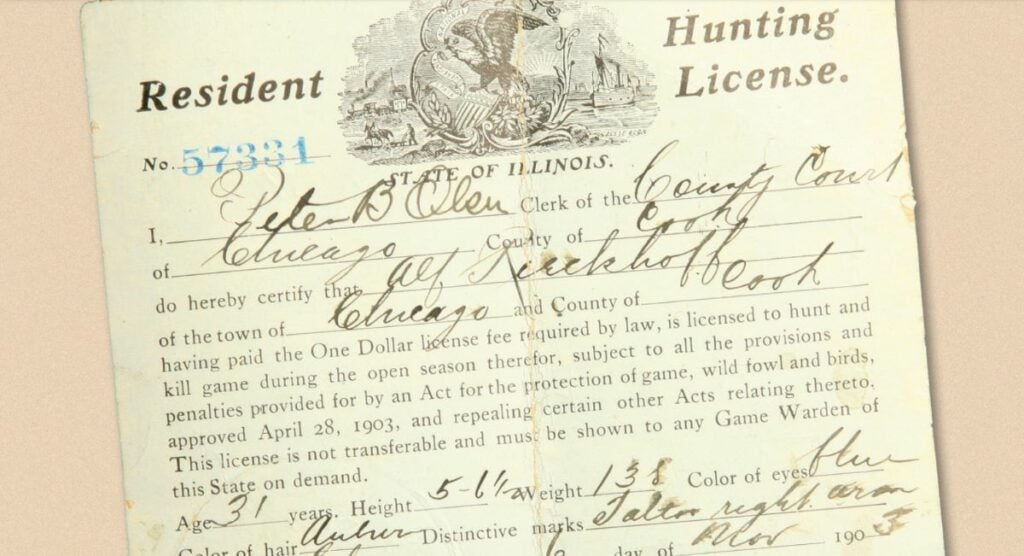 Resident Hunting License.
No. 57331
STATE OF ILLINOIS.
I, Peter B Olsen Clerk of the County Court
of Chicago County of Cook
do hereby certify that Alf Kirckhoff
of the town of Chicago and County of Cook
having paid the One Dollar license fee required by law, is licensed to hunt and
kill game during the open season therefor, subject to all the provisions and
penalties provided for by an Act for the protection of game, wild fowl and birds,
approved April 28, 1903, and repealing certain other Acts relating thereto.
This license is not transferable and must be shown to any Game Warden of
this State on demand.
Age 31 years. Height 5-6½ Weight 138 Color of eyes blue
Color of hair Auburn Distinctive marks right arm
day of Nov 1903